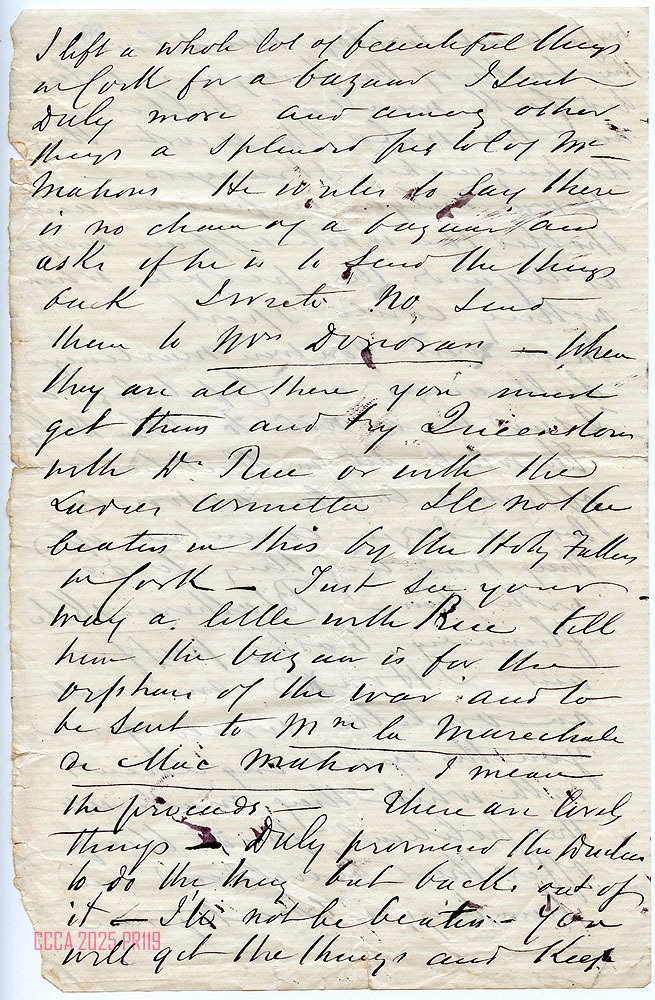 I left a whole lot of beautiful things
in Cork for a bazaar I sent
Duly more and among other
things a splendid of Mc
Mahons He writes to say there
is no chance of a bazaar and
asks if he is to send the things
back I wrote No send
them to Mrs Donovan – When
they are all there you must
get them and try Queenstown
with Dr Rice or with the
Ladies Committee Ill not be
beaten in this by the Holy Fathers
in Cork – Just see your
way a little with Rice tell
him the bazaar is for the
orphans of the war and to
be sent to Mme la Marechale
de Mac Mahon I mean
the proceeds – There are lovely
things – Duly promised the Duchess
to do the thing but backs out of
it – I'll not be beaten – You
will get the things and keep
CCCA 2025 PR119